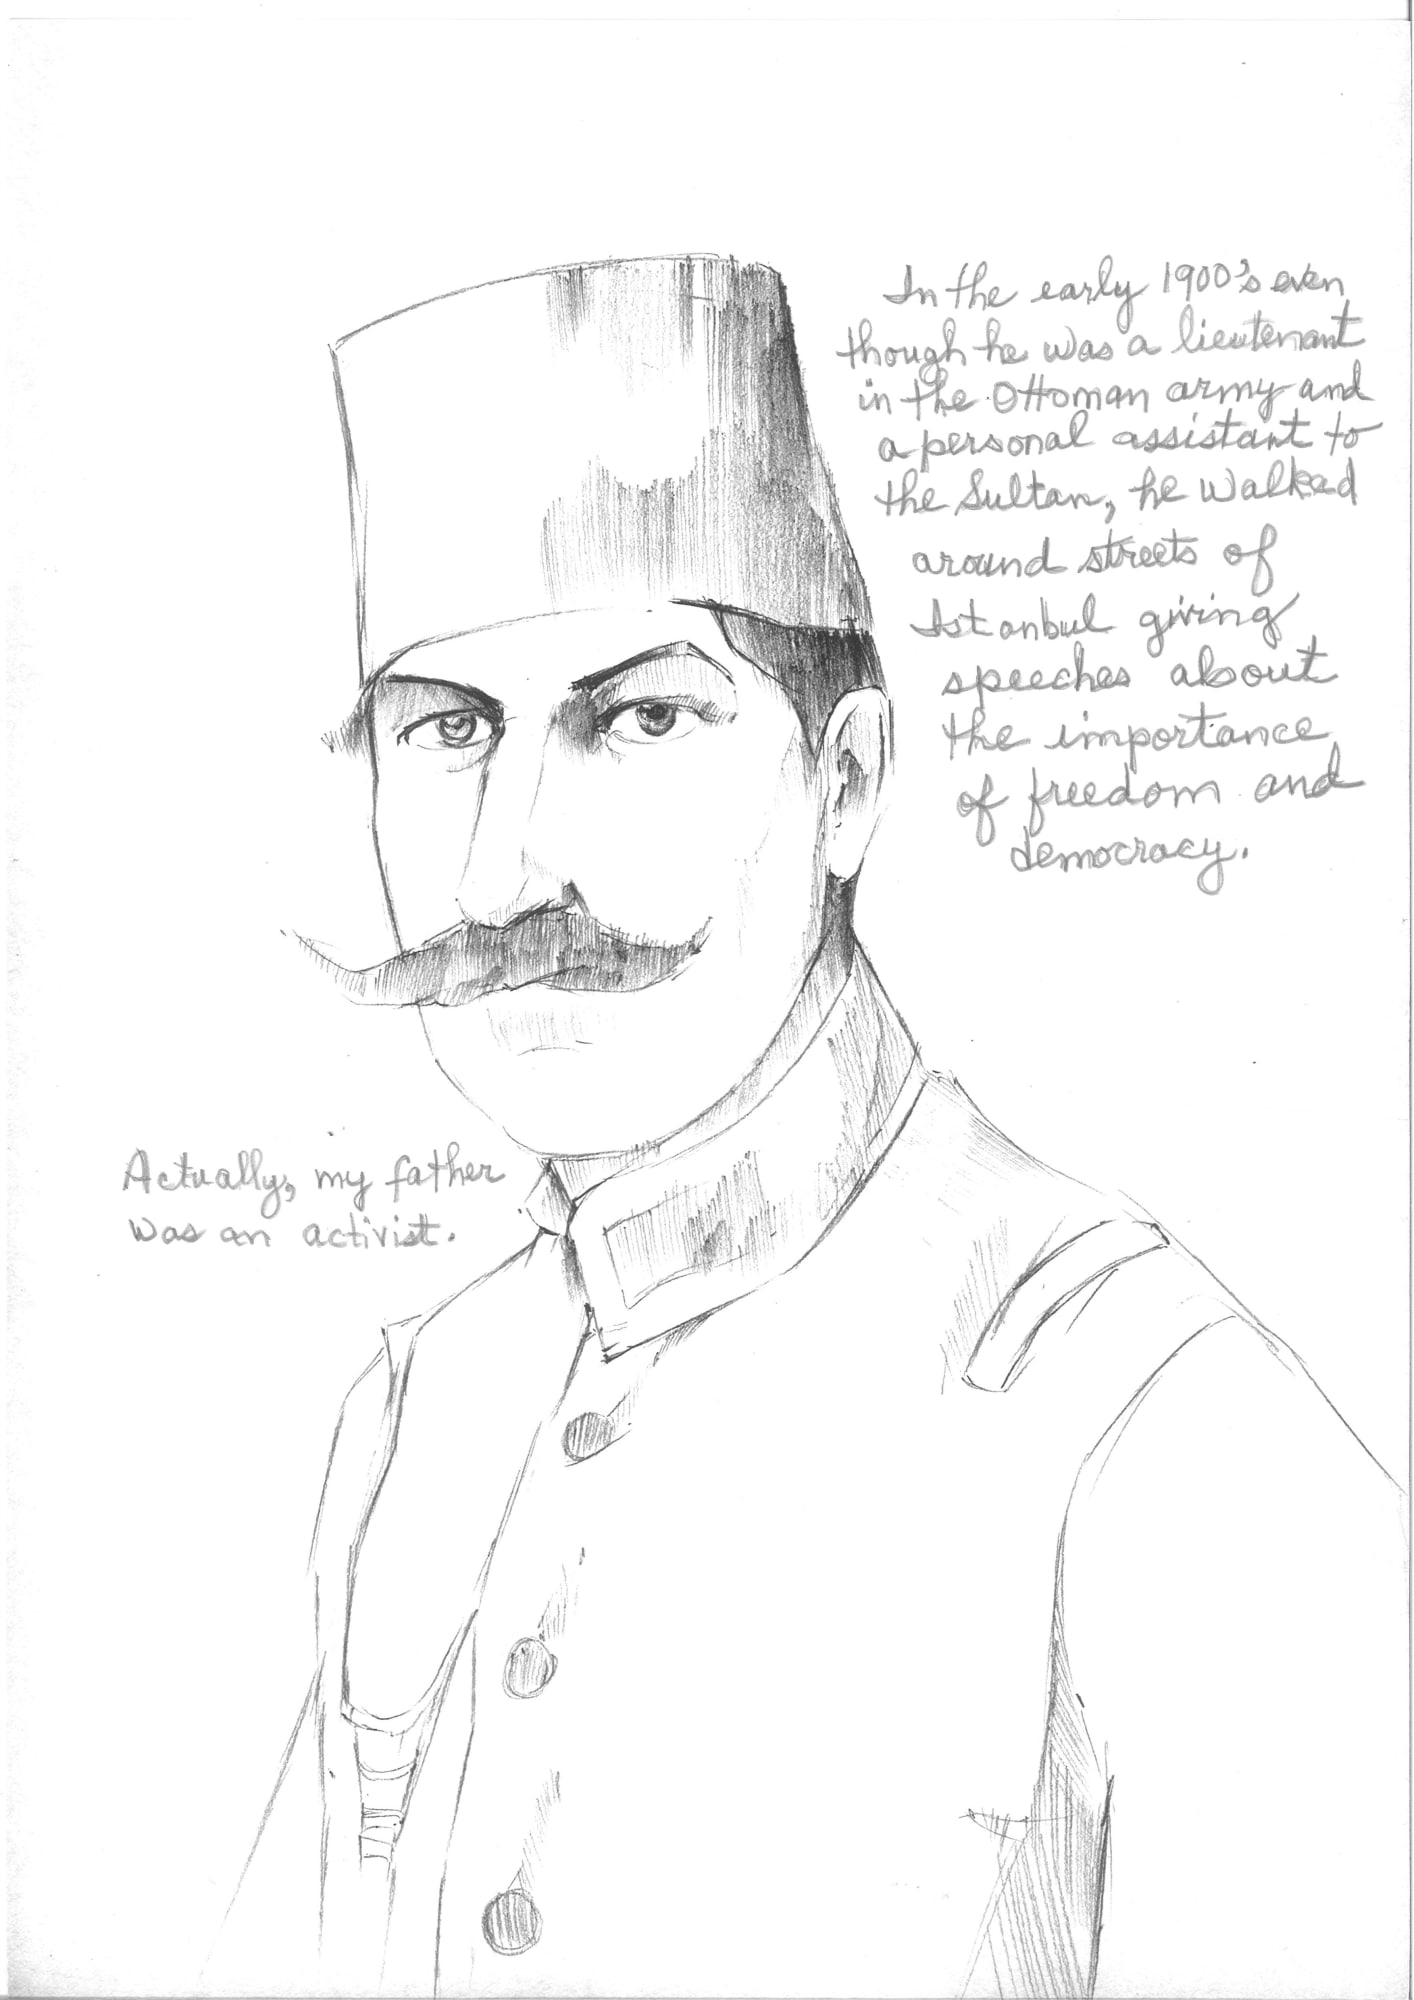 In the early 1900's even
though he was a lieutenant
in the Ottoman army and
a personal assistant to
the Sultan, he walked
around streets of
Istanbul giving
speeches about
the importance
of freedom and
democracy.
Actually, my father
was an activist.